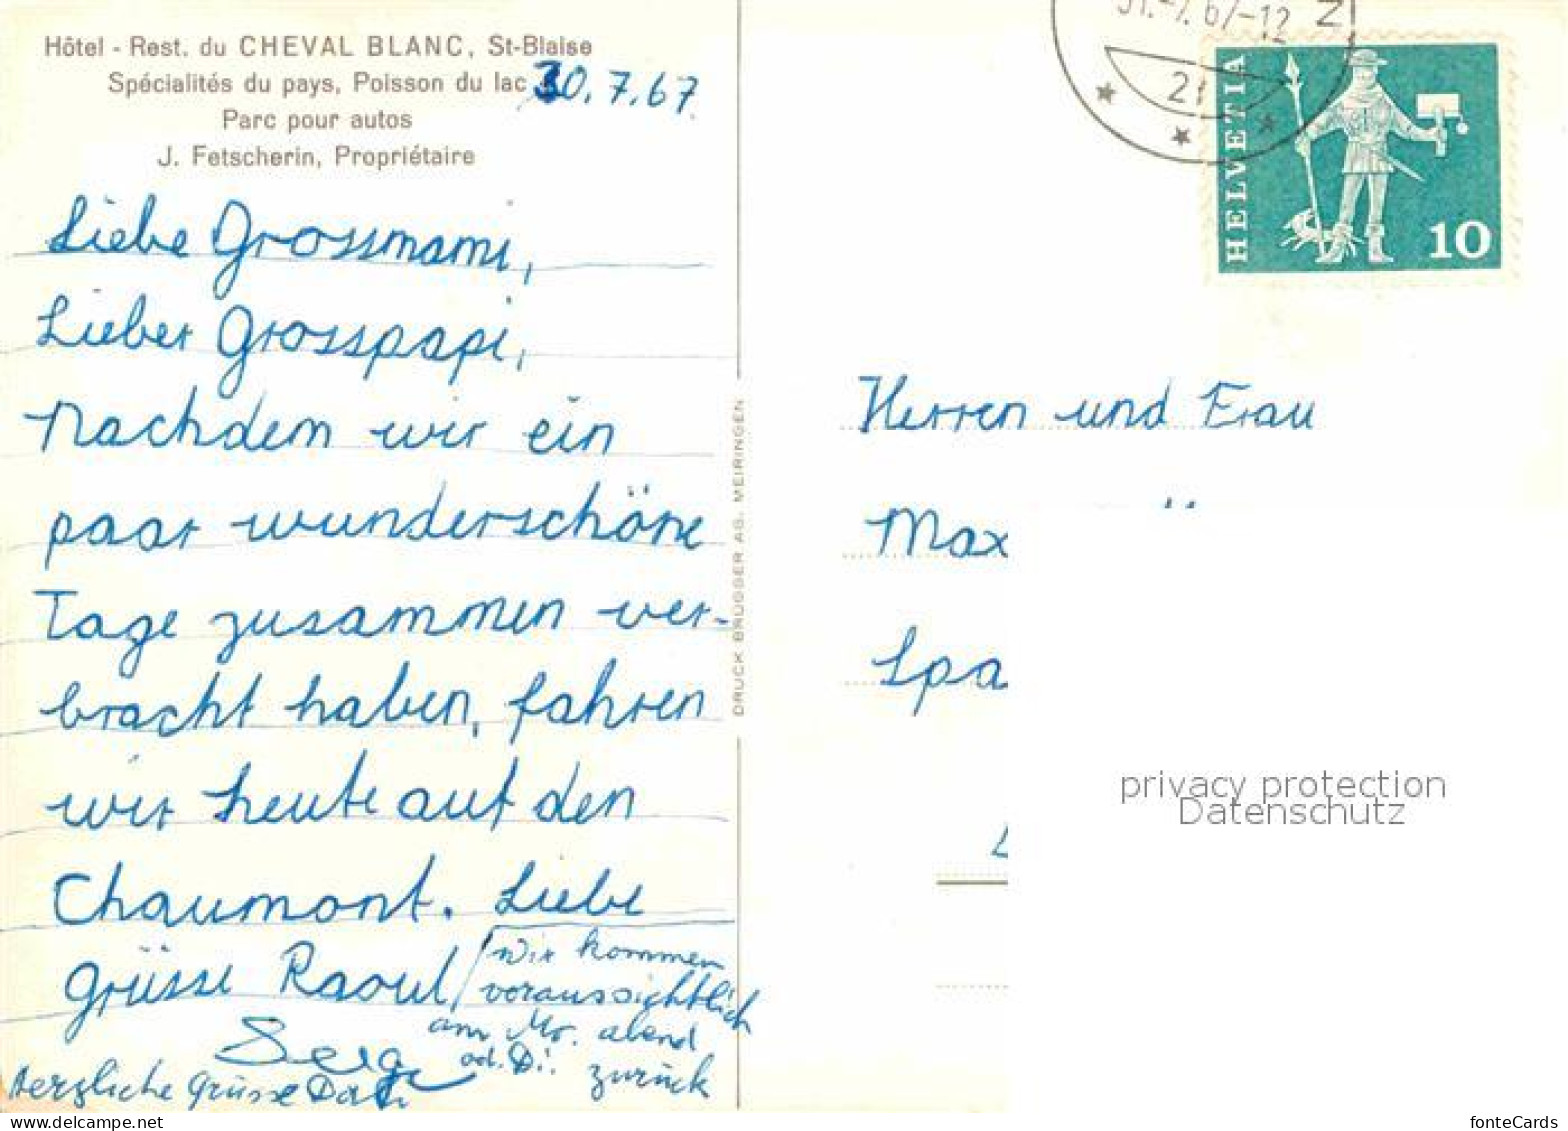 Hôtel - Rest. du CHEVAL BLANC, St-Blaise
Spécialités du pays, Poisson du lac
Parc pour autos
J. Fetscherin, Propriétaire
30.7.67
Liebe Grossmami,
Lieber Grosspapi,
Nachdem wir ein
paar wunderschöne
Tage zusammen ver-
bracht haben, fahren
wir heute auf den
Chaumont. Liebe
Grüsse Raoul
Wir kommen
voraussichtlich
am Mo. abend
od. Di. zurück
Serge
Herzliche Grüsse Dadi
DRUCK BRÜGGER AG. MEIRINGEN
31.-7.67-12
21
HELVETIA
10
Herren und Frau
Max
Spa
privacy protection
Datenschutz
fonteCards